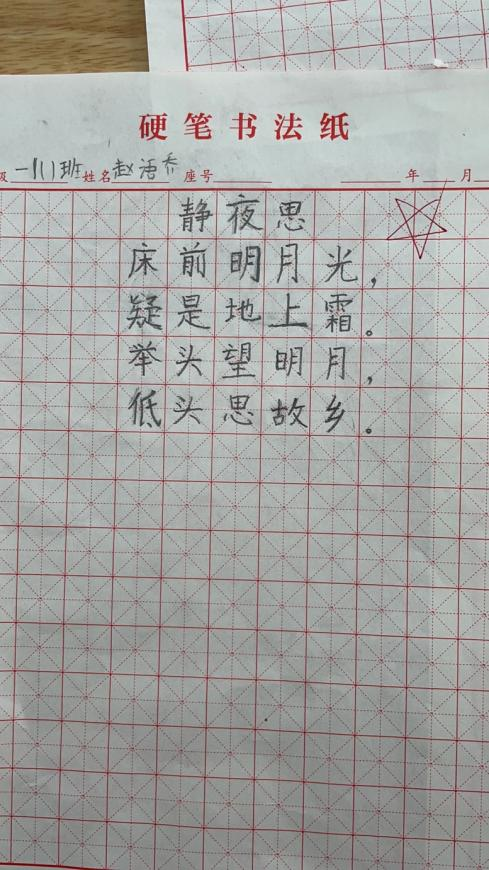 硬笔书法纸
级 一(1)班 姓名 赵语乔 座号 年 月
静夜思
床前明月光，
疑是地上霜。
举头望明月，
低头思故乡。